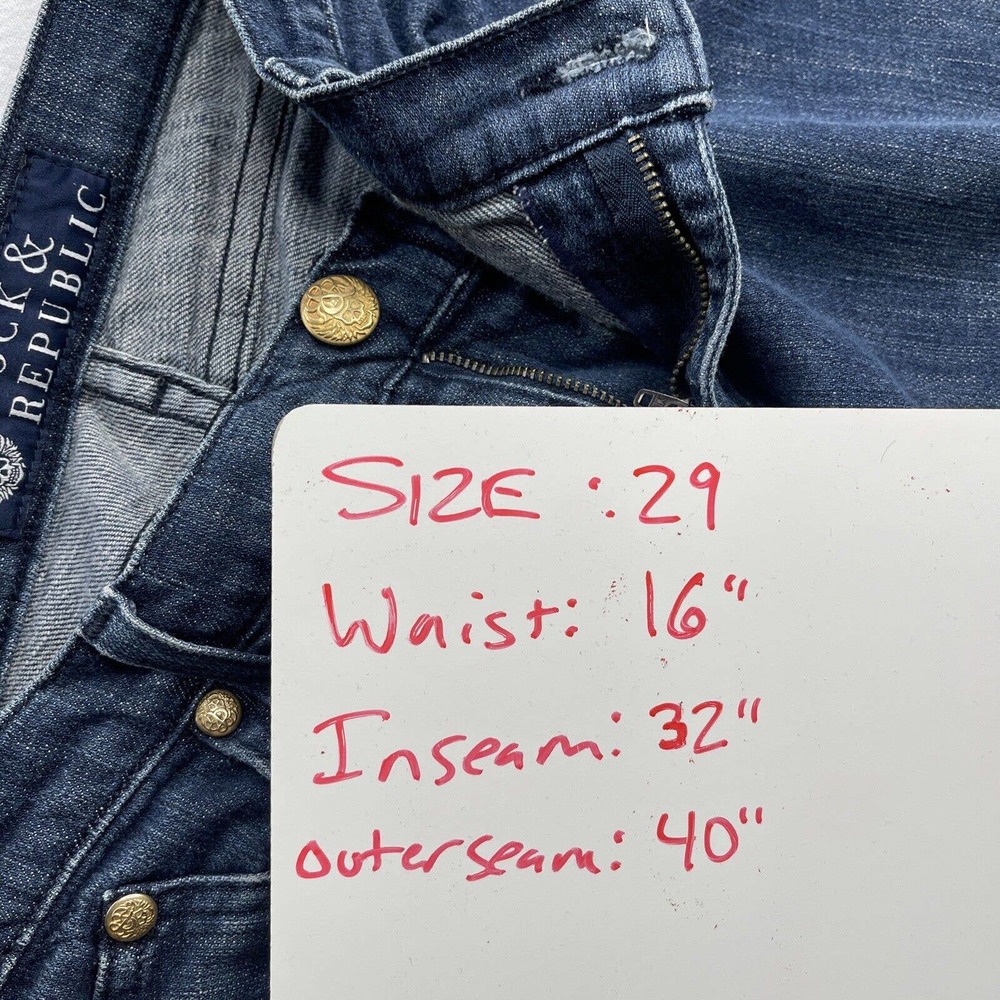 & 
REPUBLIC
SIZE : 29
Waist: 16"
Inseam: 32"
outerseam: 40"